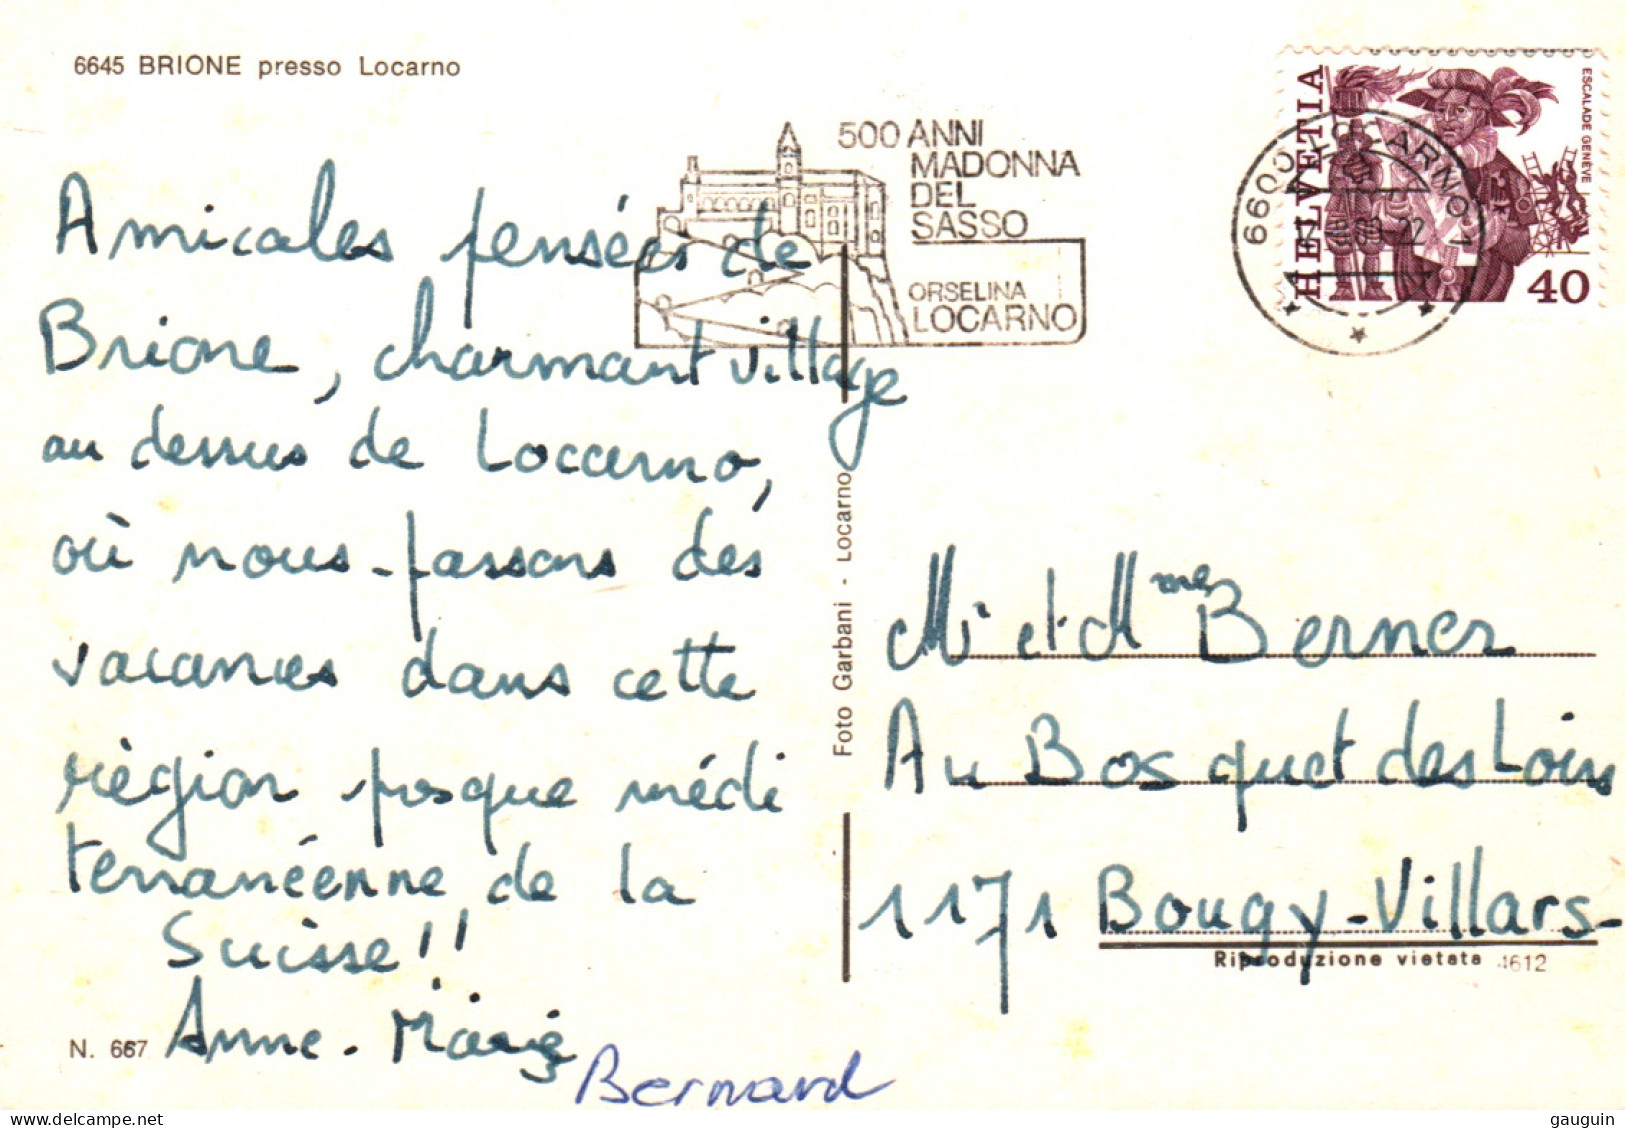 6645 BRIONE presso Locarno
500 ANNI
MADONNA
DEL
SASSO
ORSELINA
LOCARNO
6600 LOCARNO 1
HELVETIA
ESCALADE GENÈVE
40
Amicales pensées de
Brione, charmant village
au dessus de Locarno,
où nous passons des
vacances dans cette
règion presque médi
terranéenne de la
Suisse!!
Anne-Marie
Bernard
N. 667
Foto Garbani - Locarno
Mr et Mmes Berner
Au Bosquet des Loin
1171 Bougy-Villars-
Riproduzione vietata 4612
gauguin